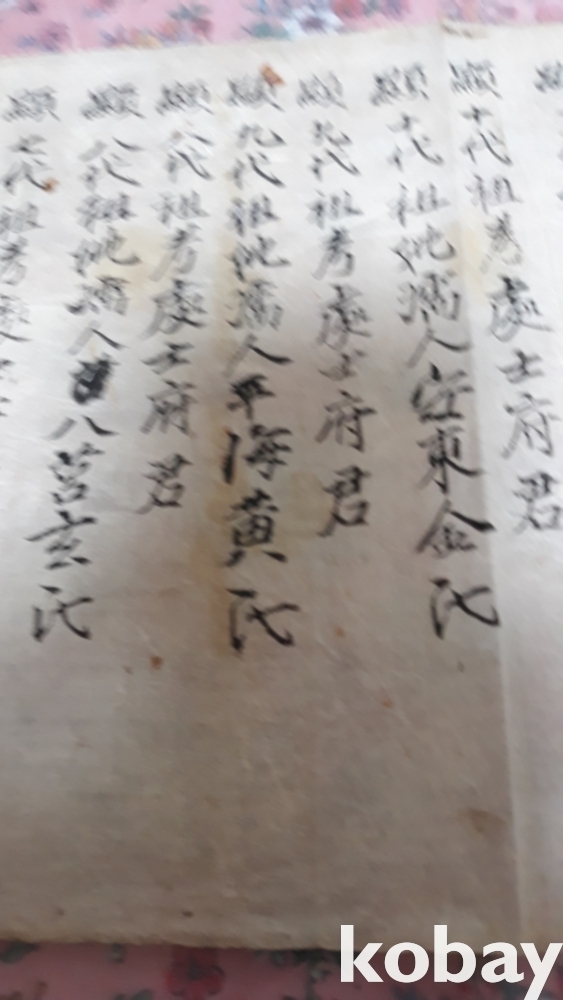 顯
顯十代祖考處士府君
顯十代祖妣孺人安東金氏
顯九代祖考處士府君
顯九代祖妣孺人平海黃氏
顯八代祖考處士府君
顯八代祖妣孺人八莒玄氏
顯七代祖考處士
kobay